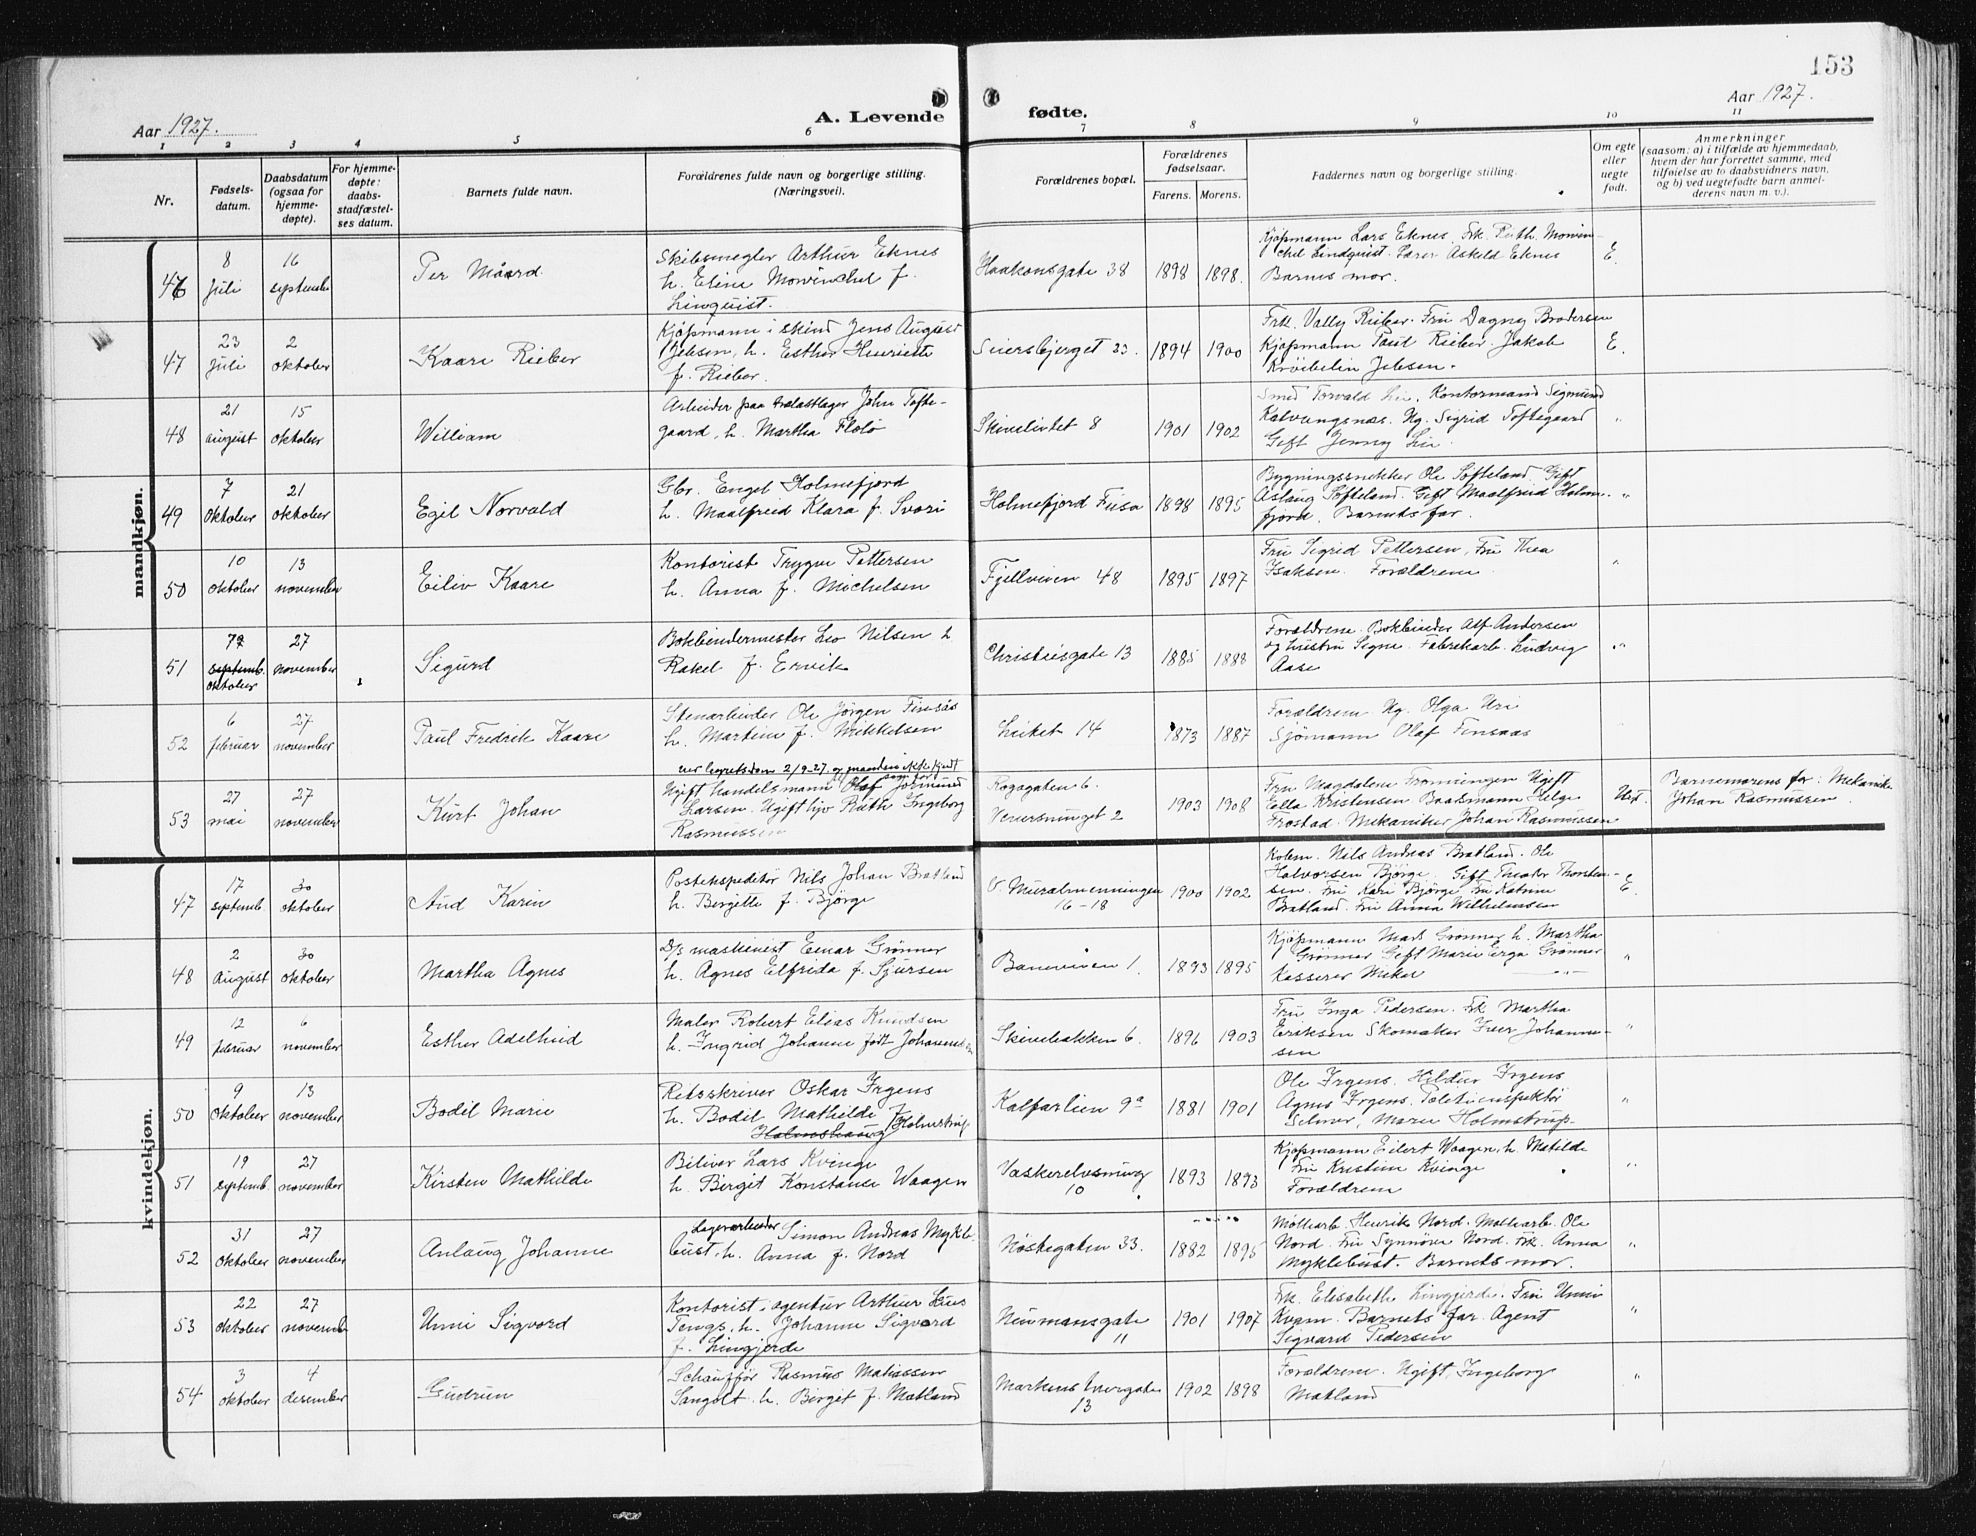 153
Aar 1927.
A. Levende fødte.
Aar 1927.
1 2 3 4 5 6 7 8 9 10 11
Nr.
Fødsels-
datum.
Daabsdatum
(ogsaa for
hjemme-
døpte).
For hjemme-
døpte:
daabs-
stadfæstel-
ses datum.
Barnets fulde navn.
Forældrenes fulde navn og borgerlige stilling.
(Næringsvei).
Forældrenes bopæl.
Forældrenes
fødselsaar.
Farens. Morens.
Faddernes navn og borgerlige stilling.
Om egte
eller
uegte
født.
Anmerkninger
(saasom: a) i tilfælde av hjemmedaab,
hvem der har forrettet samme, med
tilføielse av to daabsvidners navn,
og b) ved uegtefødte barn anmel-
derens navn m. v.).
mandkjøn.
46
8
juli
16
september
Per Måård
Skibsmegler Arthur Eknes
h. Eline Mowinckel f.
Linquist.
Haakonsgate 38
1898 1898.
Kjøpmann Lars Eknes. Frk. Ruth Mowin-
ckel Lindquist. Lærer Askild Eknes
Barnets mor.
E.
47
23
juli
2
oktober
Kaare Rieber
Kjøpmann i skind Jens August
Jebsen, h. Esther Henriette
f. Rieber.
Seiersbjerget 23.
1894 1900
Frk. Vally Rieber. Fru Dagny Brodersen
Kjøpmann Paul Rieber. Jakob
Kröibelin Jebsen.
E.
48
21
august
15
oktober
William
Arbeider paa trælastlager John Tofte-
gaard, h. Martha Flolo
Skivelivtet 8
1901 1902
Smed Torvald Lie. Kontormand Sigmund
Kalvungsnæs. Ug. Sigrid Toftegaard
Gift Jenny Lie.
"
49
7
oktober
21
oktober
Egil Norvald
Gbr. Engel Holmefjord
h. Maalfreid Klara f. Svori
Holmefjord Fusa
1898 1895
Bygningssnekker Ole Søfteland. Gift
Aslaug Søfteland. Gift Maalfreid Holme-
fjord. Barnets far.
"
50
10
oktober
13
november
Eiliv Kaare
Kontorist Trygve Pettersen
h. Anna f. Michelsen
Fjellveien 48
1895 1897
Fru Sigrid Pettersen, Fru Thea
Isaksen. Forældrene
"
51
7
septemb.
oktober
27
november
Sigurd
Bokbindermester Leo Nilsen h.
Rakel f. Ervik
Christiesgate 13
1885 1888
Forældrene. Bokbinder Alf Andersen
og hustru Signe. Fabrikarb. Ludvig
Aase
"
52
6
februar
27
november
Paul Fredrik Kaare
Stenarbeider Ole Jørgen Finsås
h. Martine f. Mikkelsen
Leiket 14
1873 1887
Forældrene Ug. Olga Uri
Sjömann Olaf Finsaas
53
27
mai
27
november
Kurt Johan
ved byretsdom 2/9-27 og manden ikke kjendt
som far
Ugift handelsmann Olaf Jörmund
Larsen. Ugift hjv Ruth Ingeborg
Rasmussen
Rogagaten 6.
Venersmuget 2
1903 1908
Fru Magdalene Fronningen Ugift
Ella Kristensen Baatsmann Helge
Frostad. Mekaniker Johan Rasmussen
Uef.
Barnemorens far: Mekaniker
Johan Rasmussen
kvindekjøn.
47
17
septemb.
30
oktober
Aud Karin
Postekspeditör Nils Johan Bratland
h. Bergette f. Bjørge
V. Muralmenningen
16-18
1900 1902
Kolon. Nils Andreas Bratland. Ole
Halvorsen Bjørge. Gift Theodor Thorsten-
sen. Fru Kari Bjørge Fru Katrine
Bratland. Fru Anna Wilhelmsen
E.
48
2
August
30
oktober
Martha Agnes
D/s maskinist Einar Grönner
h. Agnes Elfrida f. Sjursen
Baneveien 1.
1893 1895
Kjøpmann Mads Grønner h. Martha
Grønner Gift Marie Erga Grønner
Kasserer Mikal —"—
"
49
12
februar
6
november
Esther Adelheid
Maler Robert Elias Knudsen
h. Ingrid Johanne født Johannesen
Skivebakken 6.
1896 1903
Fru Inga Pedersen. Frk Martha
Eriksen Skomaker Iver Johanne-
sen
"
50
9
oktober
13
november
Bodil Marie
Retsskriver Oskar Irgens
h. Bodil Mathilde f.
Holmshaug Holmstrup
Kalfarlien 9a
1881 1901
Ole Irgens. Hildur Irgens
Agnes Irgens. Politiinspektör
Selmer, Marie Holmstrup.
"
51
19
septemb.
27
november
Kirsten Mathilde
Bileier Lars Kvinge
h. Berget Konstanse Waagen
Vaskerelvsmug
10
1893 1893
Kjøpmann Eilert Waagen h. Matilde
Fru Kristine Kvinge
Forældrene
"
52
31
oktober
27
november
Anlaug Johanne
Lagerarbeider Simon Andreas Mykle-
bust, h. Anna f. Nord
Nøstegaten 33.
1882 1895
Møllearb. Henrik Nord. Møllearb. Ole
Nord. Fru Synnöve Nord. Frk. Anna
Myklebust. Barnets mor.
"
53
22
oktober
27
november
Unni Sigvord
Kontorist i agentur Arthur Lius
Tengs, h. Johanne Sigvord
f. Lingjerde
Neumansgate
11
1901 1907
Frk. Elisabeth Lingjerde. Fru Unni
Kvam. Barnets far. Agent
Sigvard Pedersen
"
54
3
oktober
4
desember
Gudrun
Schauffør Rasmus Matiassen
Sangolt. h. Berget f. Matland
Markens Nergate
13
1902 1898
Forældrene. Ugift, Ingeborg
Matland
"